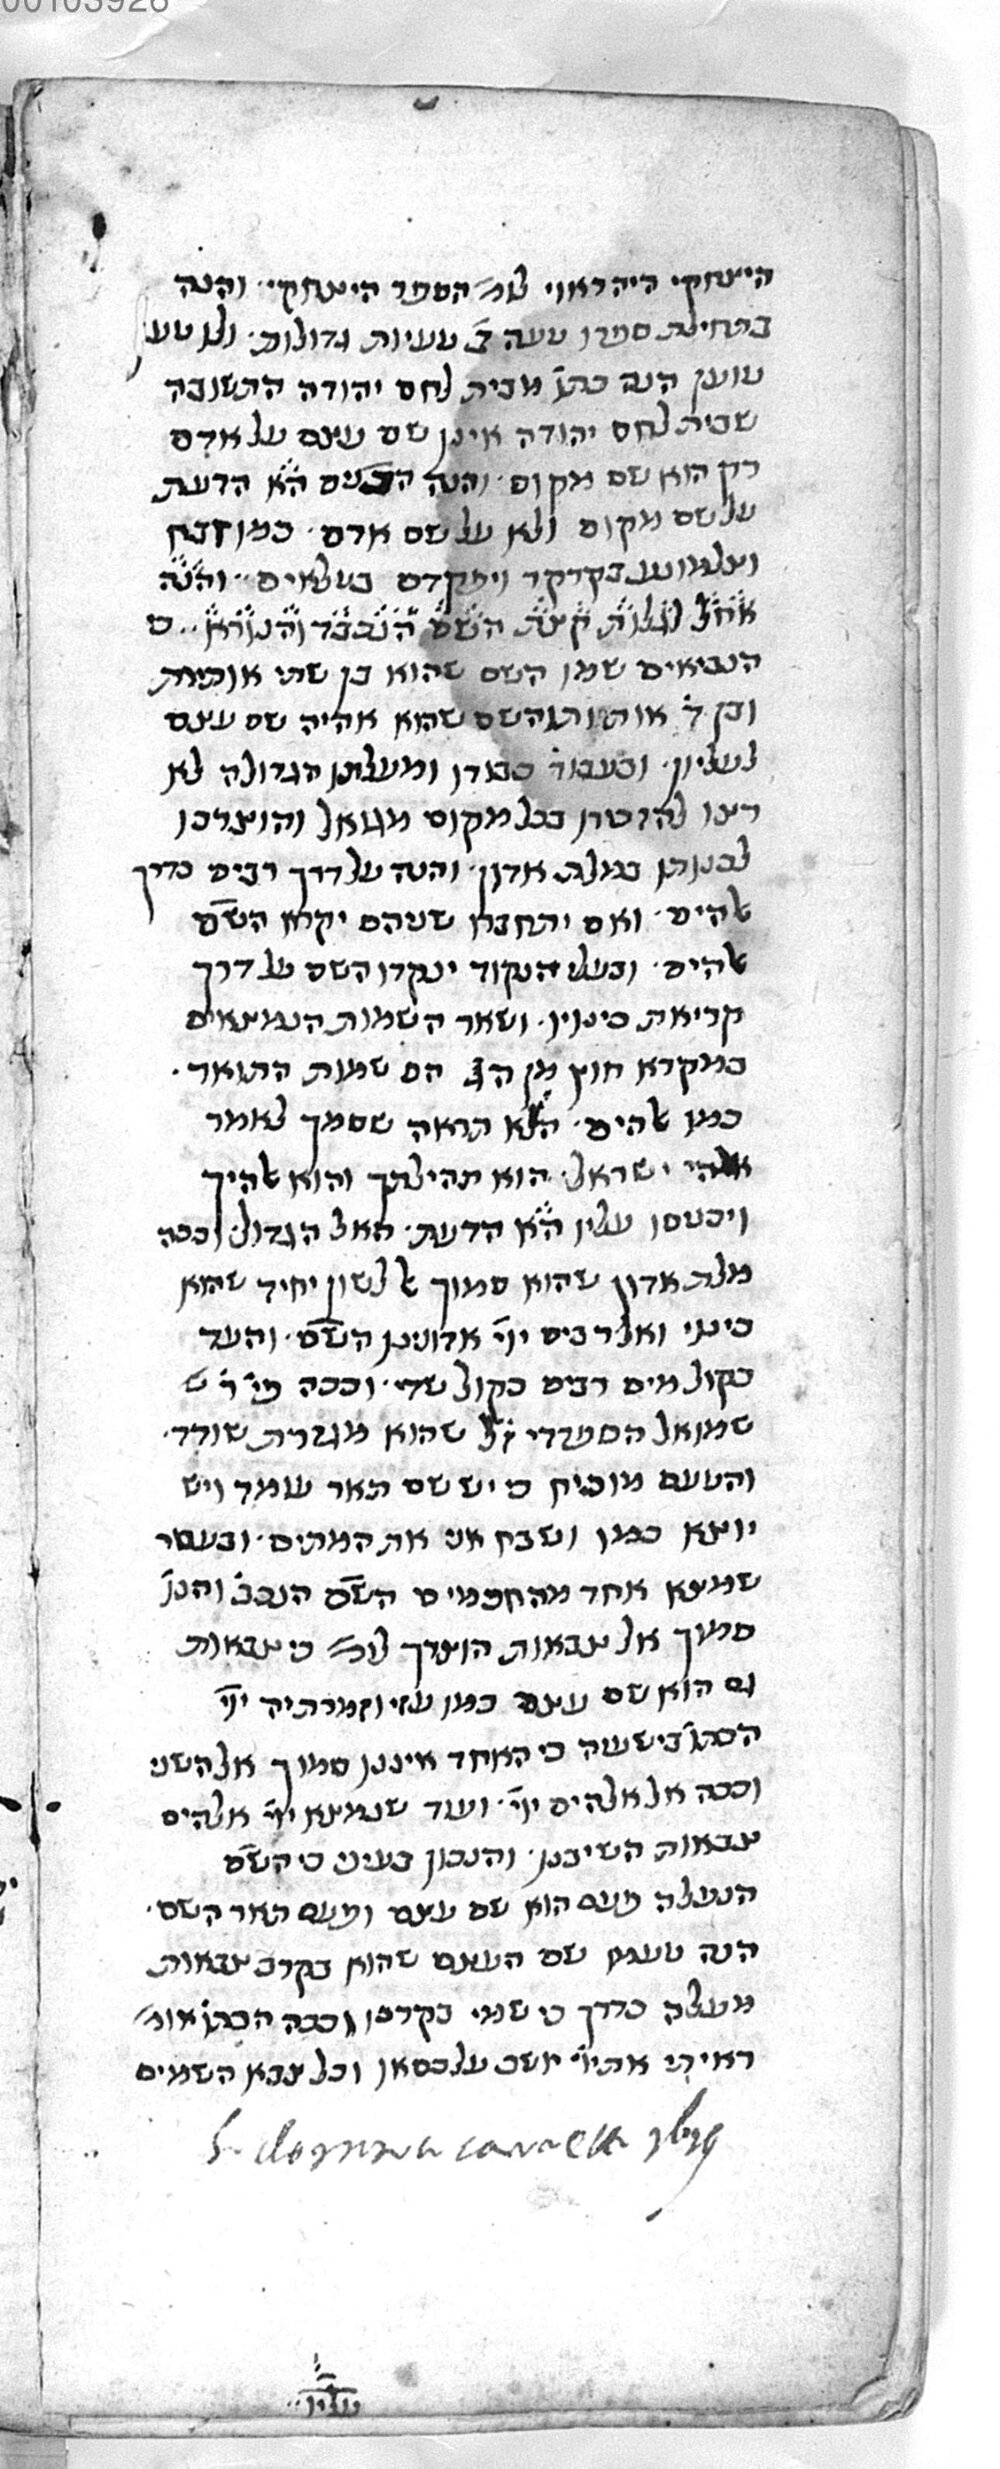 00103926
היצחקי היה ראוי שמ׳ הספר היצחקי׳ והנה
בתחילת ספרו טעה ב̇ טעיות גדולות׳ ולו טען
טוען הנה כתו׳ מבית לחם יהודה התשובה
שבית לחם יהודה איננו שם עצם על אדם
רק הוא שם מקום׳ והנה ה״א הדעת
על שם מקום ולא על שם אדם׳ כמו זבח
וצלמונע בקרקר ויפקדם בטלאים׳ והנה
אחל לגלות קצת השם הנכבד והנורא׳׳
הנביאים שמו השם שהוא בן שתי אותיות
ובן ד׳ אותיות והשם שהוא אהיה שם עצם
לעליון׳ ובעבור כבודו ומעלתו הגדולה לא
רצו להזכירו בכל מקום והוצרכו
לכנותו במלת אדון׳ והנה על דרך רבים כדרך
אלהים׳ ואם יתחברו שניהם יקרא השם
אלהים׳ ובעלי הנקוד ינקדו השם על דרך
קריאת כינויו׳ ושאר השמות הנמצאים
במקרא חוץ מן הג׳ הם שמות התואר׳
כמו אלהים׳ הלא תראה שסמך לאמר
אלהי ישראל׳ הוא תהילתך והוא אלהיך
ויכנסו עליו ה״א הדעת׳ האל הגדול׳ וככה
מלת אדון שהוא סמוך אל לשון יחיד שהוא
כינוי ואל רבים יי׳ אדונינו השם׳ והעד
כקול מים רבים כקול שדי׳ וככה פי׳ ר׳ ש׳
שמואל הספרדי ז״ל שהוא מגזרת שודד׳
והטעם מוכיח כי יש שם תאר עומד ויש
יוצא כמו ושבח אני את המתים׳ ובעבור
שמצא אחד מהחכמים השם הנכב׳ והנו׳
סמוך אל צבאות הוצרך לומ׳ כי צבאות
גם הוא שם עצם כמו עזי וזמרת יה יי׳
הכתו׳ בישעיה כי האחד איננו סמוך אל השני
וככה אל אלהים יי׳׳ ועוד שנמצא יי׳ אלהים
צבאות השיבנו׳ והנכון בעיני כי השם
הנעלה פעם הוא שם עצם ופעם תאר השם׳
הנה טעמו שם העצם שהוא בקרב צבאות
מעלה כדרך כי שמי בקרבו וככה הכתו׳ אומ׳
ראיתי את יי׳ יושב על כסאו וכל צבא השמים
עליו׳׳